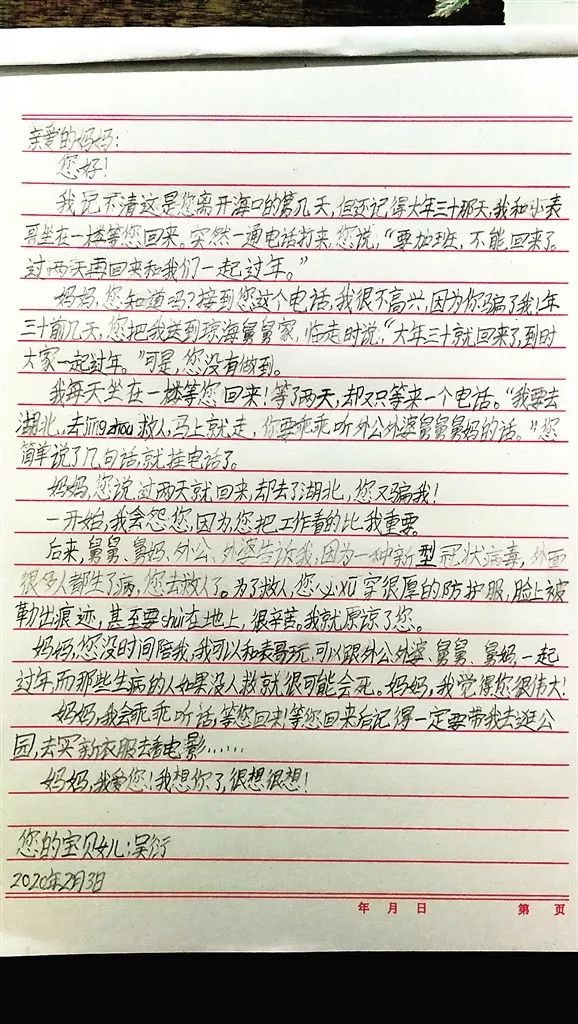 亲爱的妈妈:
您好!
我记不清这是您离开海口的第几天,但还记得大年三十那天,我和小表
哥坐在一楼等您回来。突然一通电话打来,您说,“要加班,不能回来了。
过两天再回来和我们一起过年。”
妈妈,您知道吗?接到您这个电话,我很不高兴,因为你骗了我!年
三十前几天,您把我送到琼海舅舅家,临走时说,“大年三十就回来了,到时
大家一起过年。”可是,您没有做到。
我每天坐在一楼等您回来!等了两天,却又只等来一个电话。“我要去
湖北,去jīngzhou救人,马上就走,你要乖乖听外公外婆舅舅舅妈的话。”您
简单说了几句话,就挂电话了。
妈妈,您说过两天就回来,却去了湖北,您又骗我!
一开始,我会怨您,因为您把工作看的比我重要。
后来,舅舅、舅妈、外公、外婆告诉我,因为一种新型冠状病毒,外面
很多人都生了病,您去救人了。为了救人,您必xū穿很厚的防护服,脸上被
勒出痕迹,甚至要shuì在地上,很辛苦。我就原谅了您。
妈妈,您没时间陪我,我可以和表哥玩,可以跟外公外婆、舅舅、舅妈一起
过年,而那些生病的人如果没人救就很可能会死。妈妈,我觉得您很伟大!
妈妈,我会乖乖听话,等您回来!等您回来后记得一定要带我去逛公
园,去买新衣服去看电影……
妈妈,我爱您!我想你了,很想很想!
您的宝贝女儿:吴衍
2020年2月3日
年 月 日 第 页